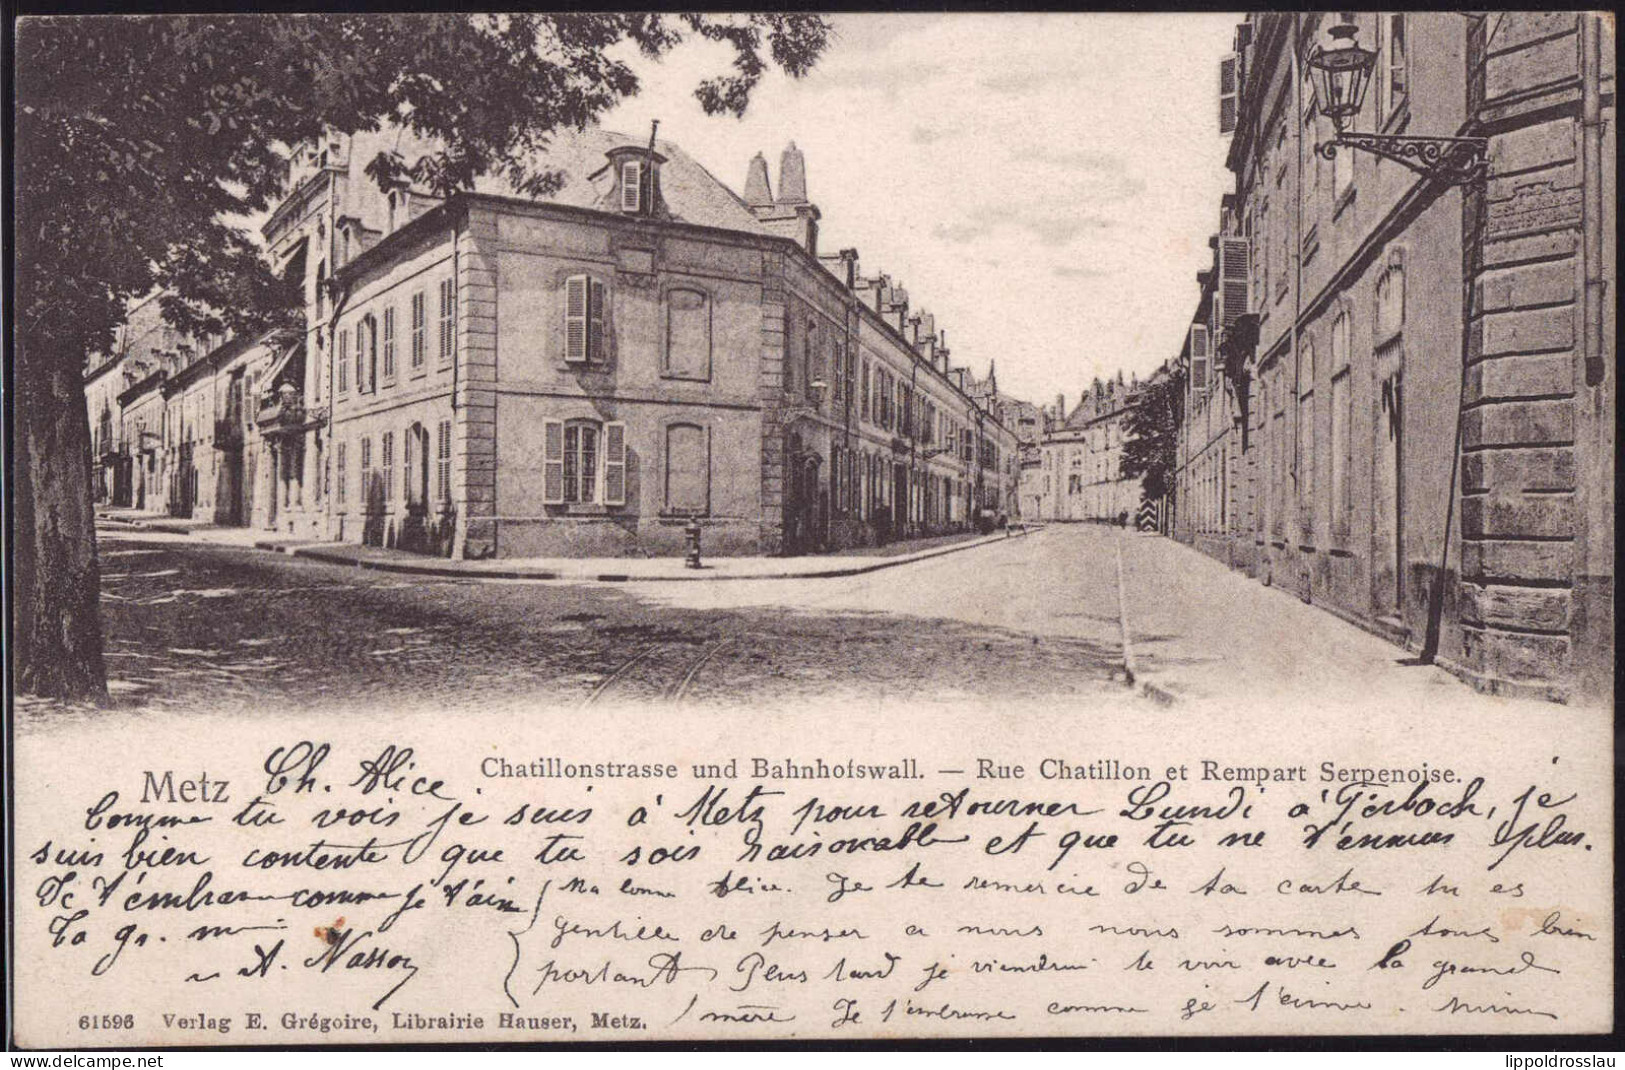 Metz
Ch. Alice
Chatillonstrasse und Bahnhofswall. — Rue Chatillon et Rempart Serpenoise.
Comme tu vois je suis à Metz pour retourner Lundi à Forbach, je
suis bien contente que tu sois raisonable et que tu ne t'ennuies plus.
Je t'embrasse comme je t'aime
Ta gr. m
A. Nassoy
Ma bonne Alice. Je te remercie de ta carte tu es
gentille de penser a nous nous sommes tous bien
portant Plus tard je viendrai te voir avec la grand
mère Je t'embrasse comme je t'aime.
61596 Verlag E. Grégoire, Librairie Hauser, Metz.
lippoldrosslau